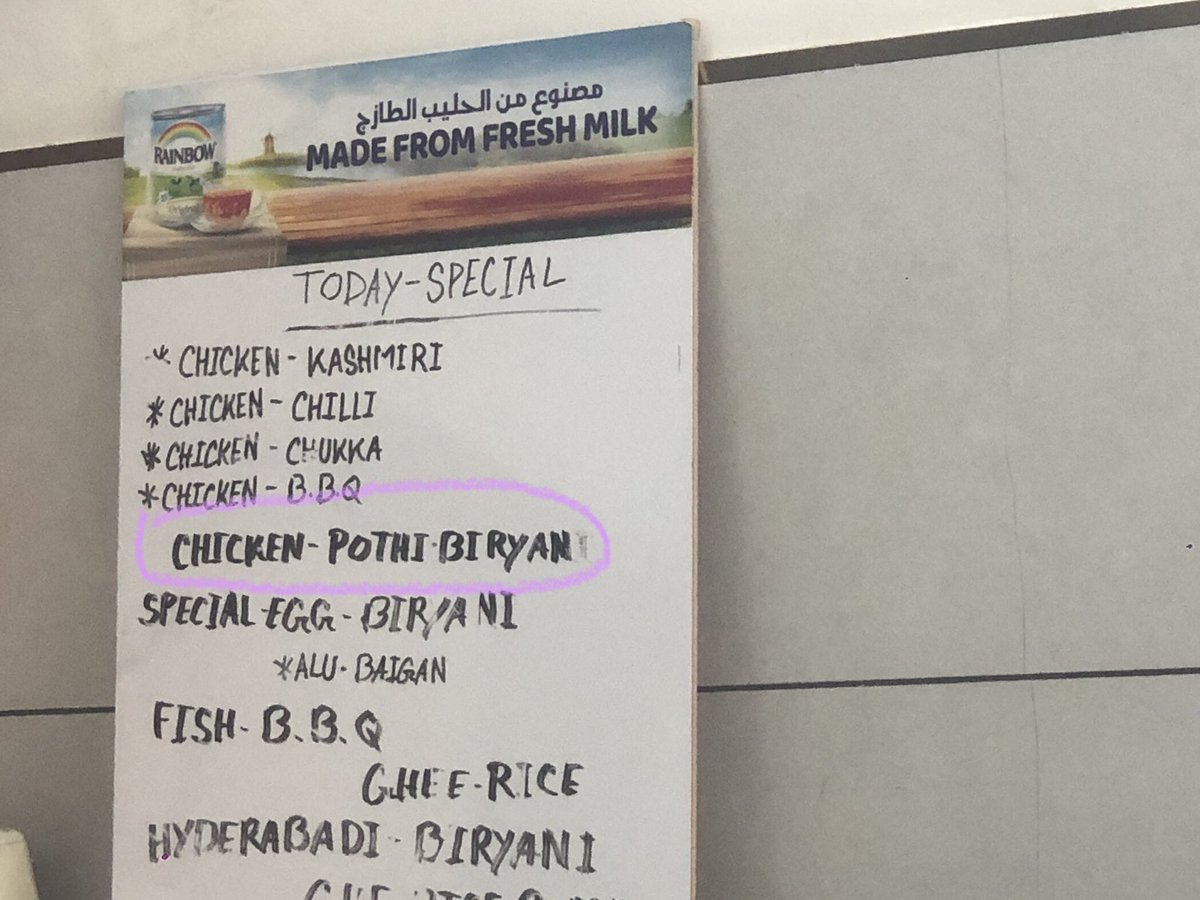 مصنوع من الحليب الطازج
MADE FROM FRESH MILK
RAINBOW
TODAY-SPECIAL
* CHICKEN - KASHMIRI
* CHICKEN - CHILLI
* CHICKEN - CHUKKA
* CHICKEN - B.B.Q
CHICKEN - POTHI-BIRYANI
SPECIAL-EGG - BIRYANI
* ALU - BAIGAN
FISH - B.B.Q
GHEE-RICE
HYDERABADI - BIRYANI